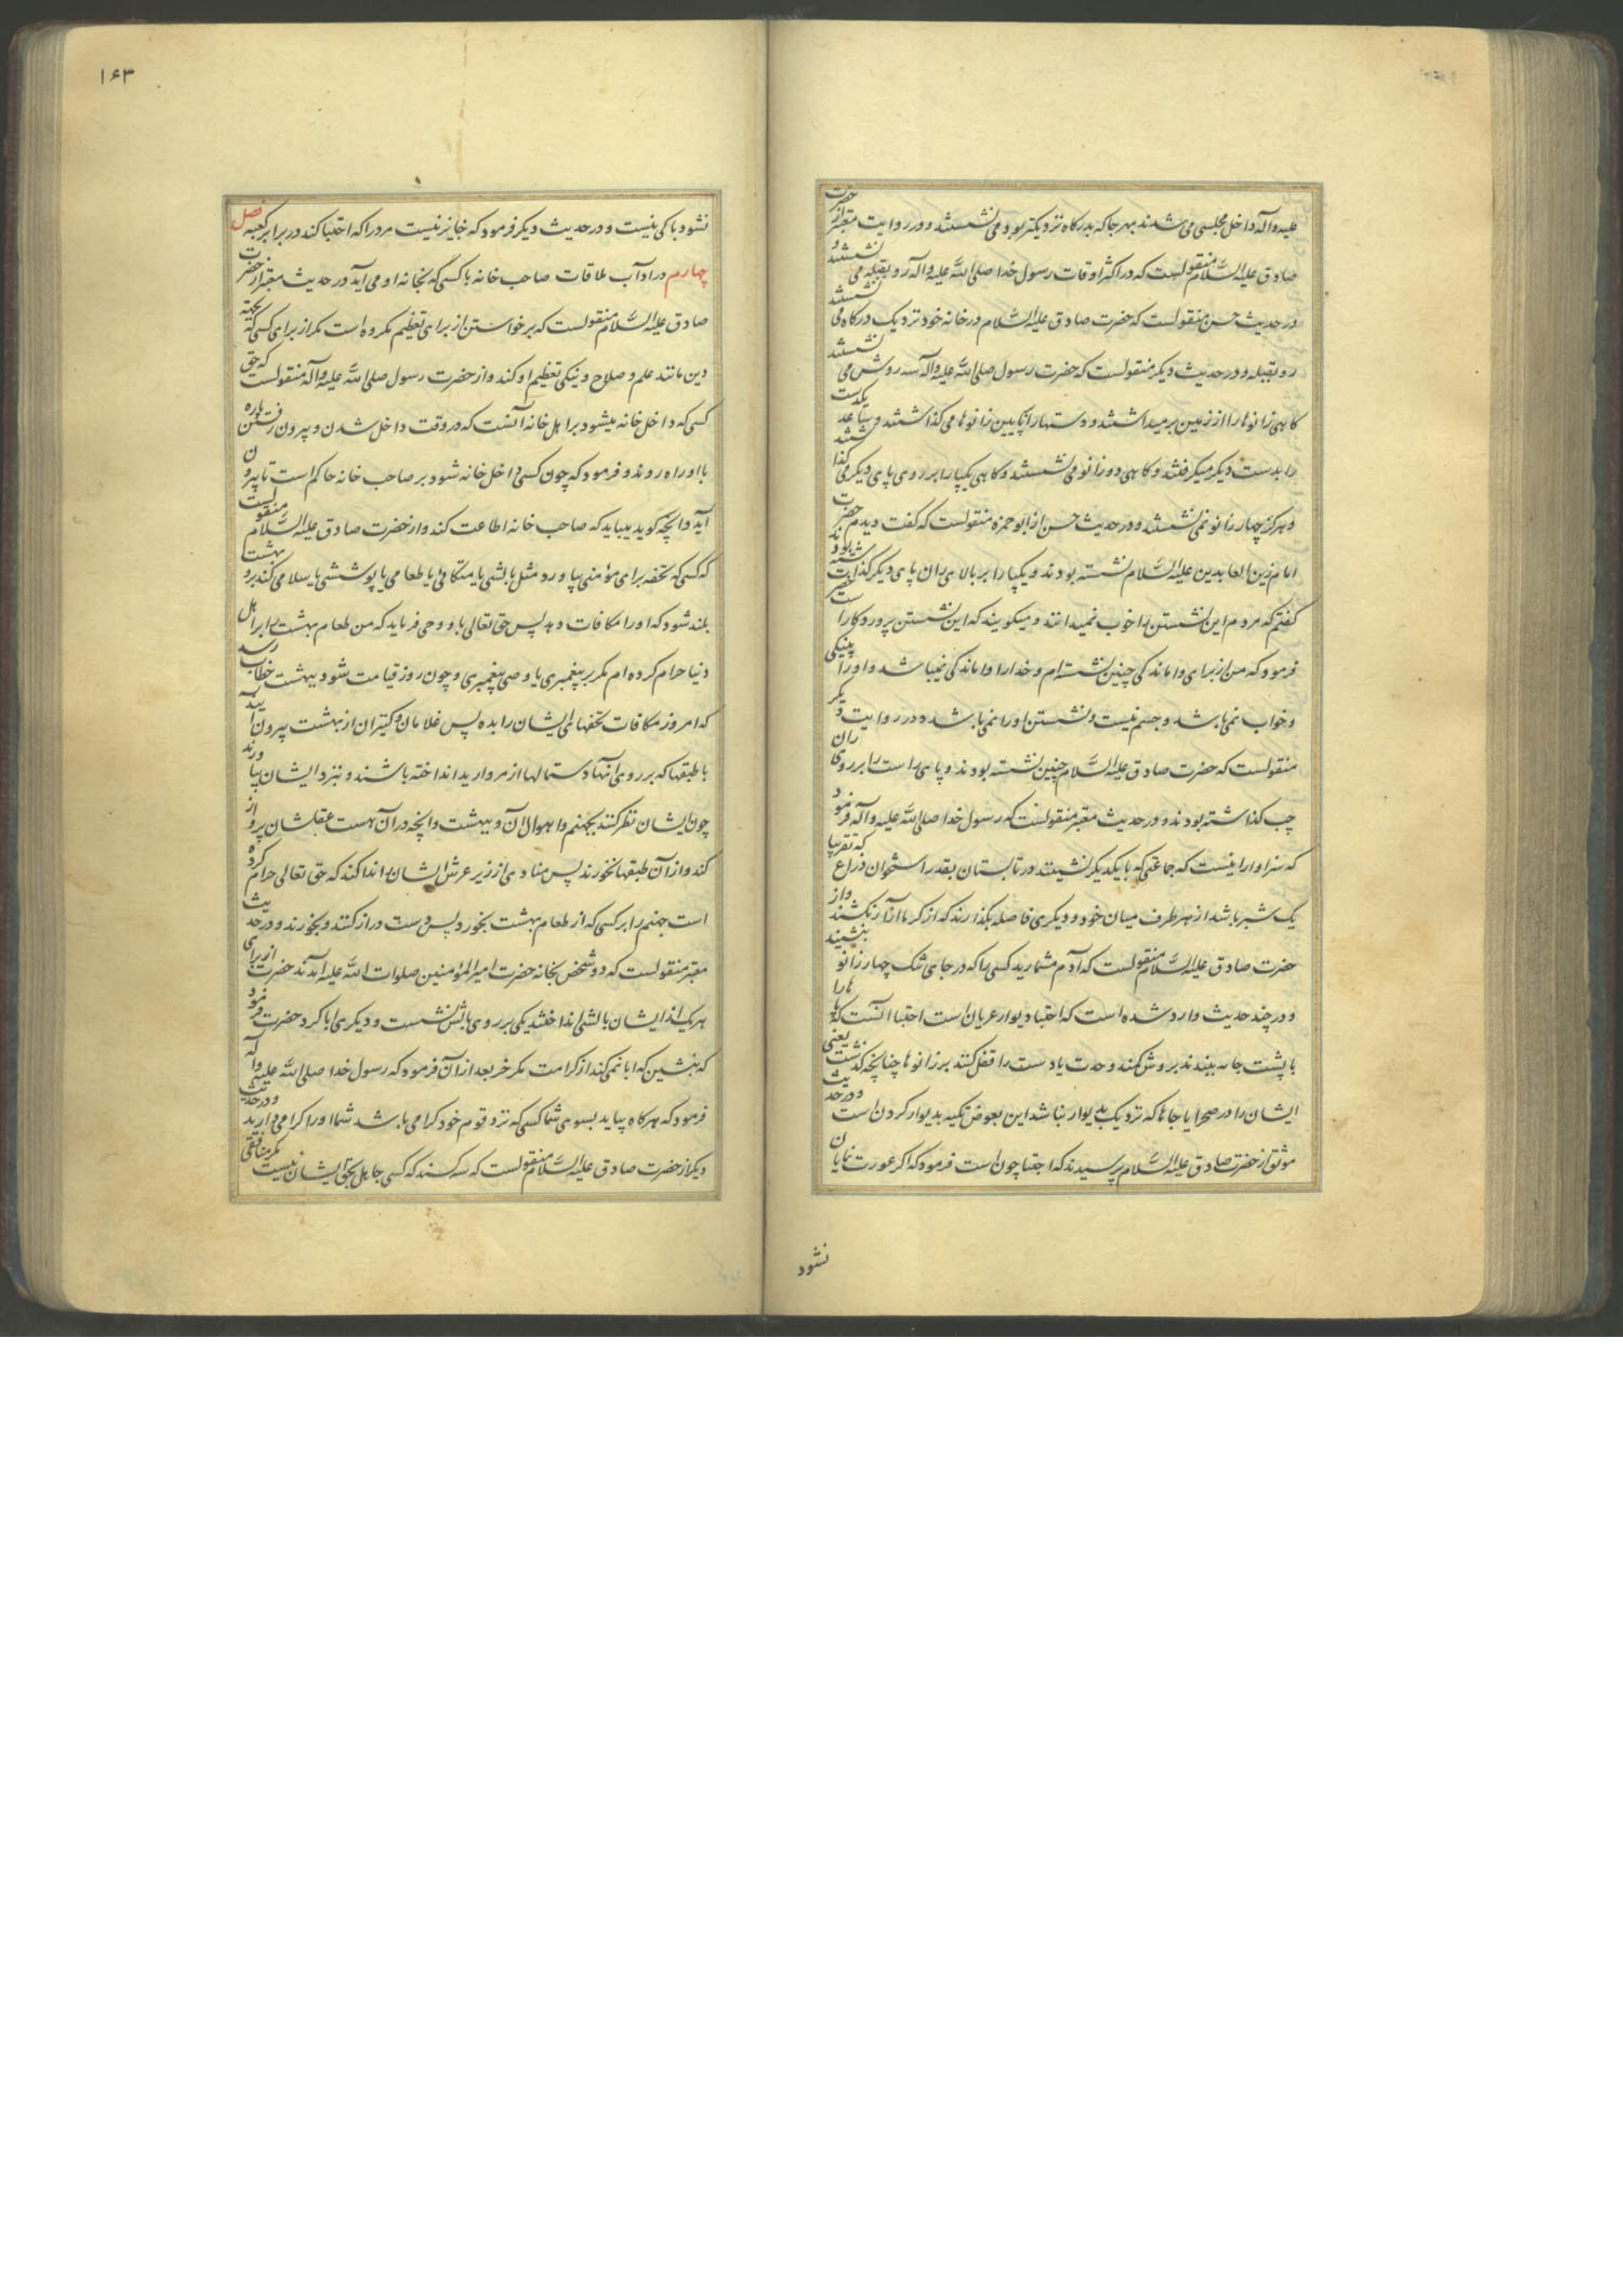 علیه و آله داخل مجلسی می شدند بهر جا که بدرکاه نزدیکتر بود می نشستند و در روایت معتبر از حضرت
صادق علیه السلام منقولست که در اکثر اوقات رسول خدا صلی الله علیه و اله رو بقبله می نشستند و
در حدیث حسن منقولست که حضرت صادق علیه السلام در خانه خود نزدیک درکاه می نشستند
رو بقبله و در حدیث دیکر منقولست که حضرت رسول صلی الله علیه واله سه روش می نشستند
کاهی زانوها را از زمین برمیداشتند و دستها را پایین زانوها می کذاشتند و ساعد یکدست
را بدست دیکر میکرفتند و کاهی دو زانو می نشستند و کاهی یکپا را بر روی پای دیکر می کذاشتند
و هرکز چهار زانو نمی نشستند و در حدیث حسن از ابو حمزه منقولست که کفت دیدم حضرت
امام زین العابدین علیه السلام نشسته بودند و یکپا را بر بالای ران پای دیکر کذاشته بودند
کفتم که مردم این نشستن را خوب نمیدانند و میکویند که این نشستن پروردکار است حضرت
فرمود که من از برای واماندکی چنین نشسته ام و خدا را واماندکی نمیباشد و او را پینکی
و خواب نمی باشد و جسم نیست و نشستن او را نمی باشد و در روایت دیکر
منقولست که حضرت صادق علیه السلام چنین نشسته بودند و پای راست را بر روی ران
چب کذاشته بودند و در حدیث معتبر منقولست که رسول خدا صلی الله علیه و اله فرمود
که سزاوار اینست که جماعتی که با یکدیکر نشینند در تابستان بقدر استخوان ذراع که تقریبا
یک شبر باشد از هر طرف میان خود و دیکری فاصله بکذارند که از کرما آزار نکشند و از
حضرت صادق علیه السلام منقولست که آدم مشمارید کسی را که در جای تنک چهار زانو بنشیند
و در چند حدیث وارد شده است که احتبا دیوار عربان است احتبا آنست که پاها را
با پشت جامه ببندند بروش کمند وحدت یا دست را قفل کنند بر زانوها چنانچه کذشت یعنی
ایشان را در صحرا یا جاها که نزدیک بدیوار نباشد این بعوض تکیه بدیوار کردن است و در حدیث
موثق از حضرت صادق علیه السلام پرسیدند که احتبا چون است فرمود که اکر عورت نمایان
نشود
۱۶۳
نشود باکی نیست و در حدیث دیکر فرمود که جایز نیست مرد را که احتبا کند در برابر کعبه فصل
چهارم در آداب ملاقات صاحب خانه با کسی که بخانه او می آید در حدیث معتبر از حضرت
صادق علیه السلام منقولست که برخواستن از برای تعظیم مکروه است مکر از برای کسی که بجهة
دین مانند علم و صلاح و نیکی تعظیم او کنند و از حضرت رسول صلی الله علیه و آله منقولست که حق
کسی که داخل خانه میشود بر اهل خانه آنست که در وقت داخل شدن و بیرون رفتن پاره
با او راه روند و فرمود که چون کسی داخل خانه شود بر صاحب خانه حاکم است تا بیرون
آید و آنچه کوید بیباید که صاحب خانه اطاعت کند و از حضرت صادق علیه السلام منقولست
که کسی که تحفه برای مؤمنی بیاورد مثل بالشی یا متکائی یا طعامی یا پوششی یا سلامی کند بر او بهشت
بلند شود که او را مکافات دهد پس حق تعالی باو وحی فرماید که من طعام بهشت را بر اهل
دنیا حرام کرده ام مکر بر پیغمبری یا وصی پیغمبری و چون روز قیامت شود ببهشت خطاب رسد
که امروز مکافات تحفهای ایشان را بده پس غلامان و کنیزان از بهشت بیرون آیند
با طبقها که بر روی آنها دستمالها از مروارید انداخته باشند و بنزد ایشان بیاورند
چون ایشان نظر کنند بجهنم و اهوال آن و ببهشت و آنچه در آن هست عقلشان پرواز
کند و از آن طبقها نخورند پس منادی از زیر عرش ایشان را ندا کند که حق تعالی حرام کرده
است جهنم را بر کسی که از طعام بهشت بخورد پس دست دراز کنند و بخورند و در حدیث
معتبر منقولست که دو شخص بخانه حضرت امیر المؤمنین صلوات الله علیه آمدند حضرت از برای
هر یک از ایشان بالشی انداختند یکی بر روی بالش نشست و دیکری ابا کرد حضرت فرمود
که بنشین که ابا نمی کند از کرامت مکر خر بعد از آن فرمود که رسول خدا صلی الله علیه و آله
فرمود که هرکاه بیاید بسوی شما کسی که نزد قوم خود کرامی باشد شما او را کرامی دارید و در حدیث
دیکر از حضرت صادق علیه السلام منقولست که سه کسند که کسی جاهل بحق ایشان نیست مکر منافقی